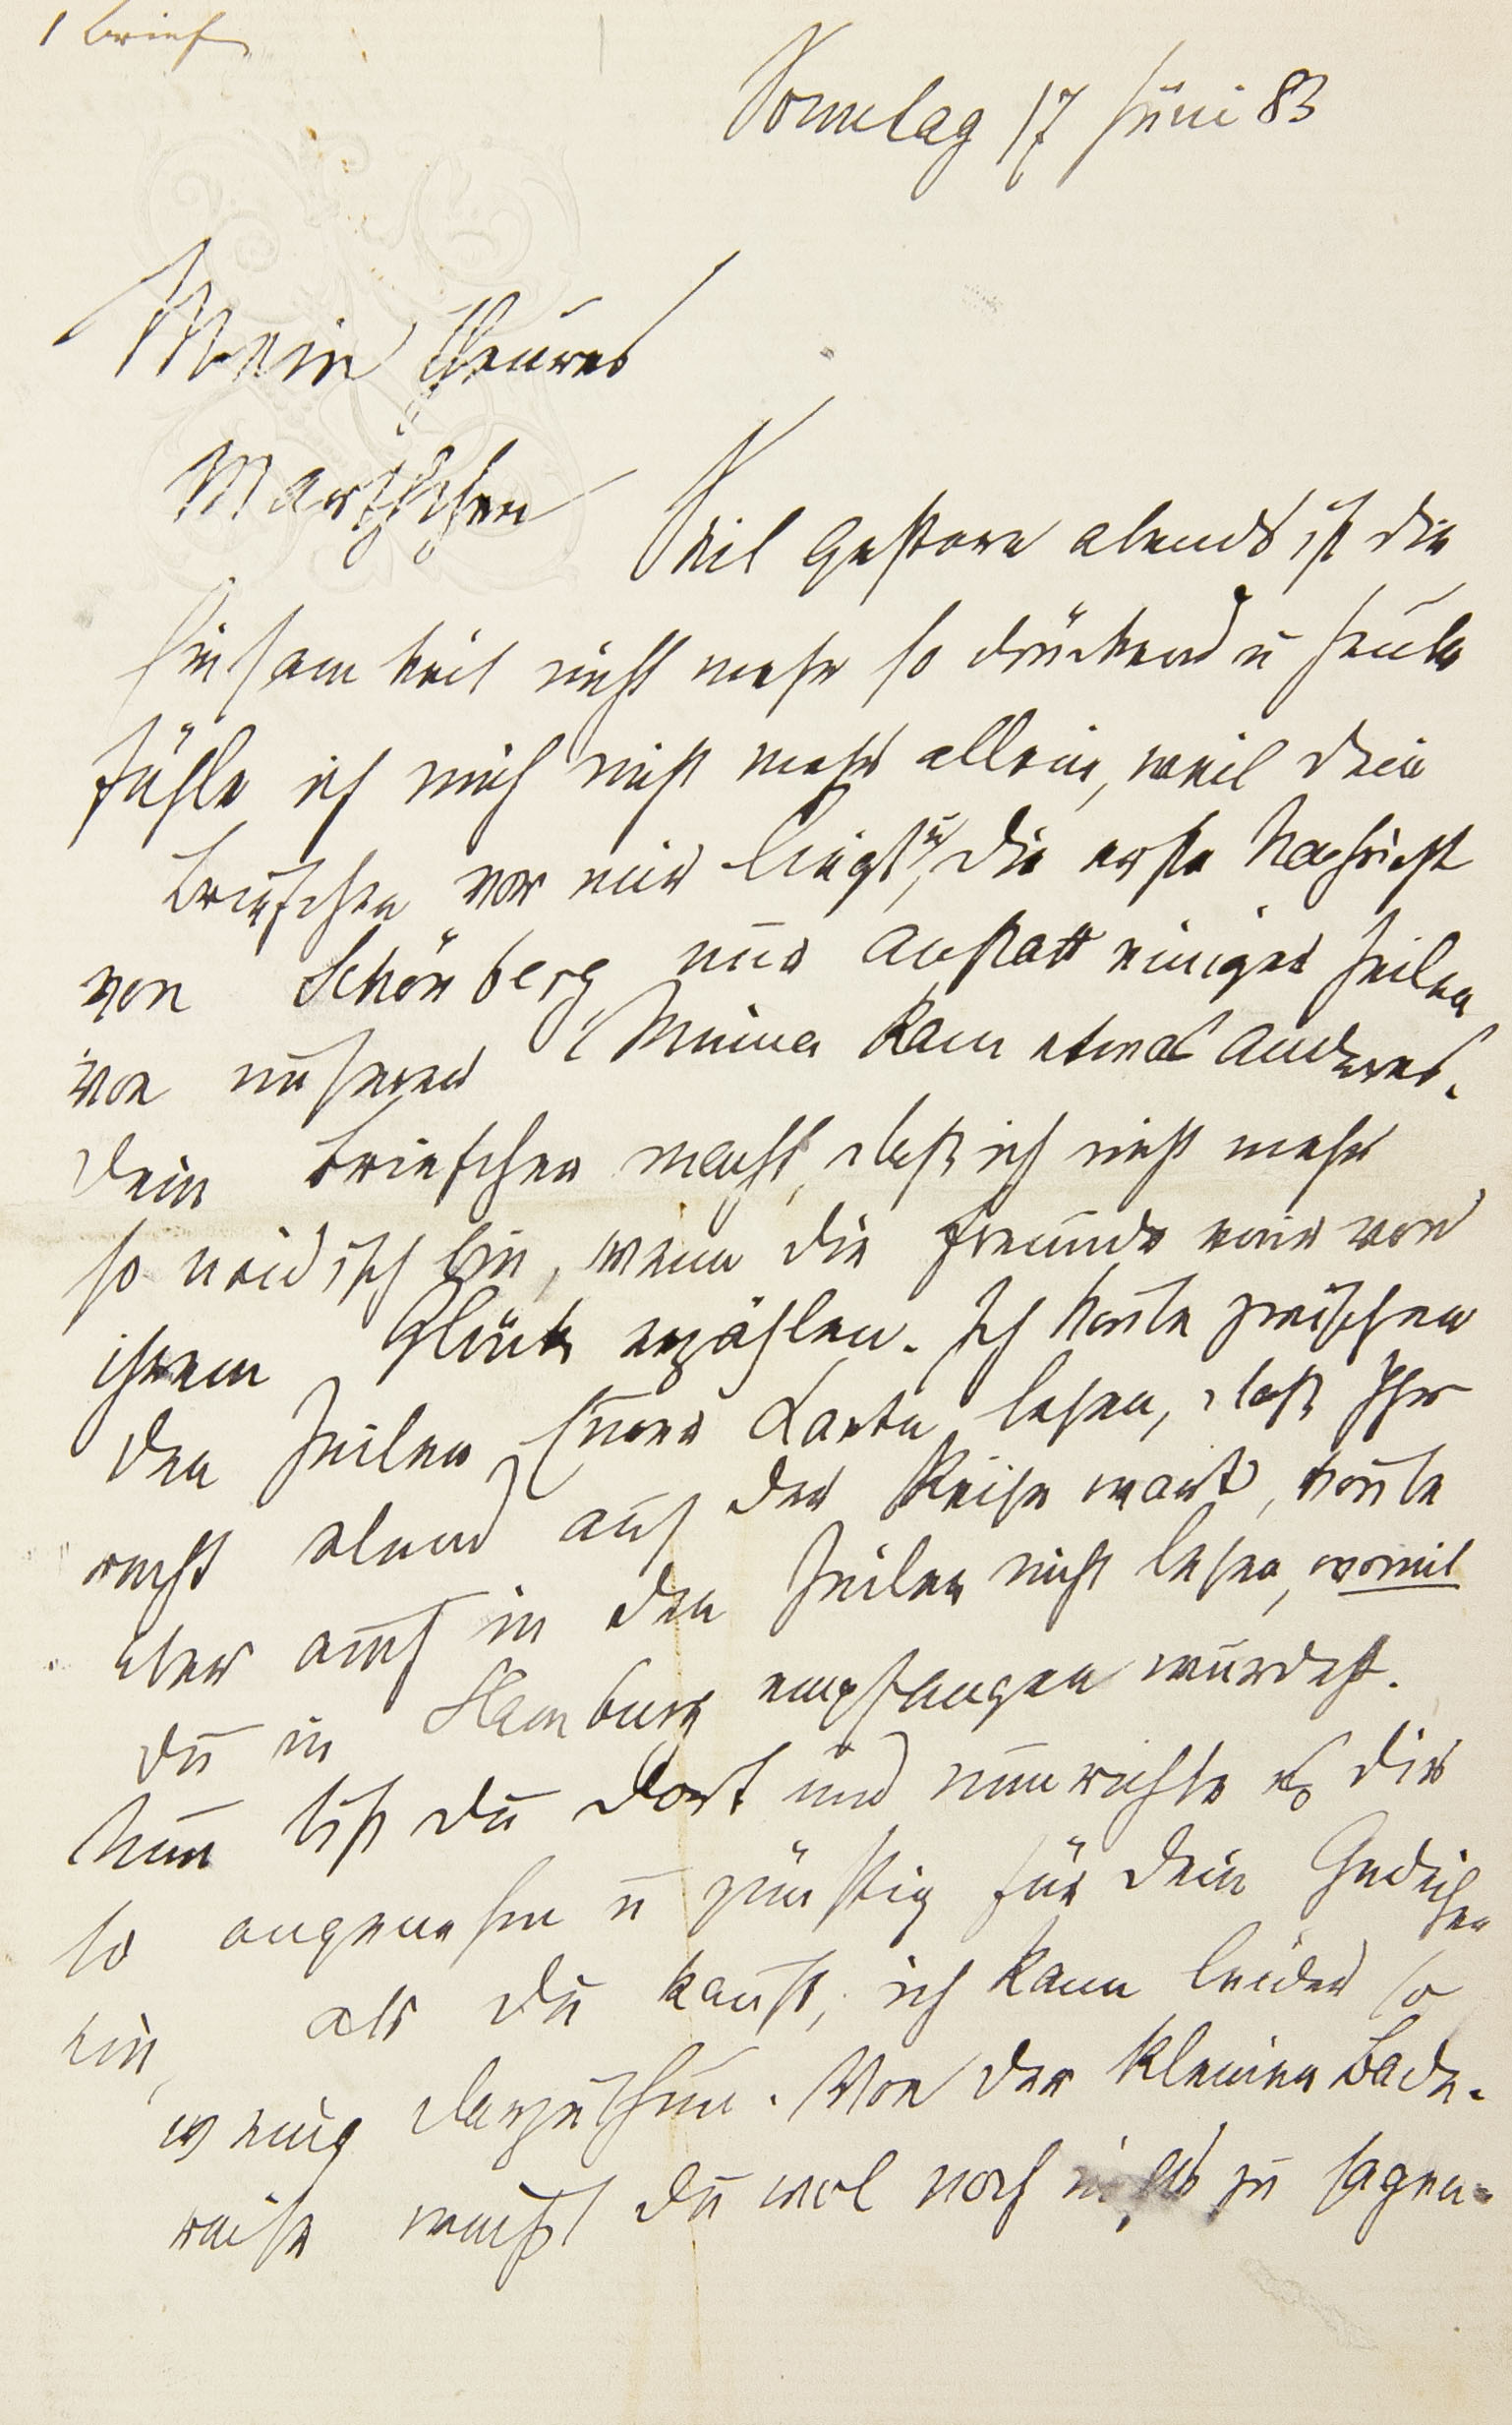 1 Brief
Sonntag 17 Juni 83
Mein theures
Marthchen
Seit gestern abends ist die
Einsamkeit nicht mehr so drückend u heute
fühle ich mich nicht mehr allein, weil dein
Briefchen vor mir liegt, u die erste Nachricht
von Schönberg nur anstatt einiger Zeilen
von unserer Minna kam etwas anderes.
Dein Briefchen macht, daß ich nicht mehr
so neidisch bin, wenn die Freunde mir von
ihrem Glück erzählen. Ich konte zwischen
den Zeilen Eurer Karte lesen, daß Ihr
recht elend auf der Reise wart, konte
aber auch in den Zeilen nicht lesen, womit
du in Hamburg empfangen wurdest.
Nun bist du dort und nun richte es dir
so angenehm u günstig für dein Gedeihen
ein, als du kanst, ich kann leider so
wenig dazu thun. Von der kleinen Bade-
reise weißt du wol noch nichts zu sagen.